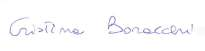 Cristina Bonaccini